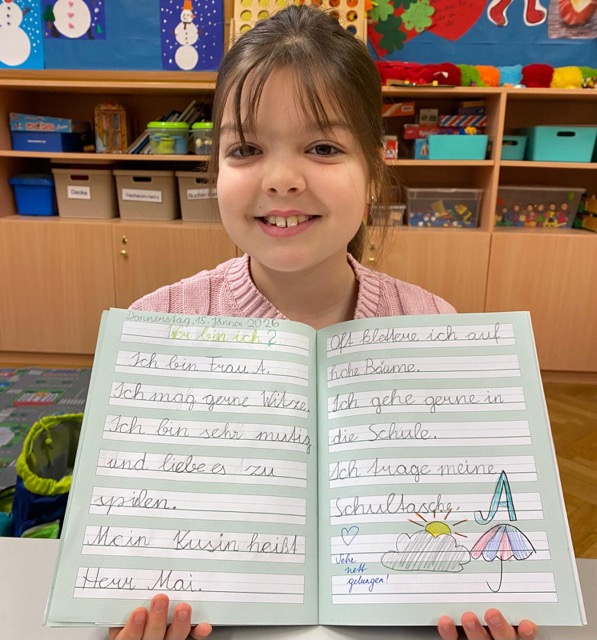 Decke
Taschenrechner
Donnerstag, 15. Jänner 2026
Wer bin ich?
Ich bin Frau A.
Ich mag gerne Witze.
Ich bin sehr mutig
und liebe es zu
spielen.
Mein Kusin heißt
Herr Mai.
Oft klettere ich auf
hohe Bäume.
Ich gehe gerne in
die Schule.
Ich trage meine
Schultasche.
A
Sehr
nett
gelungen!